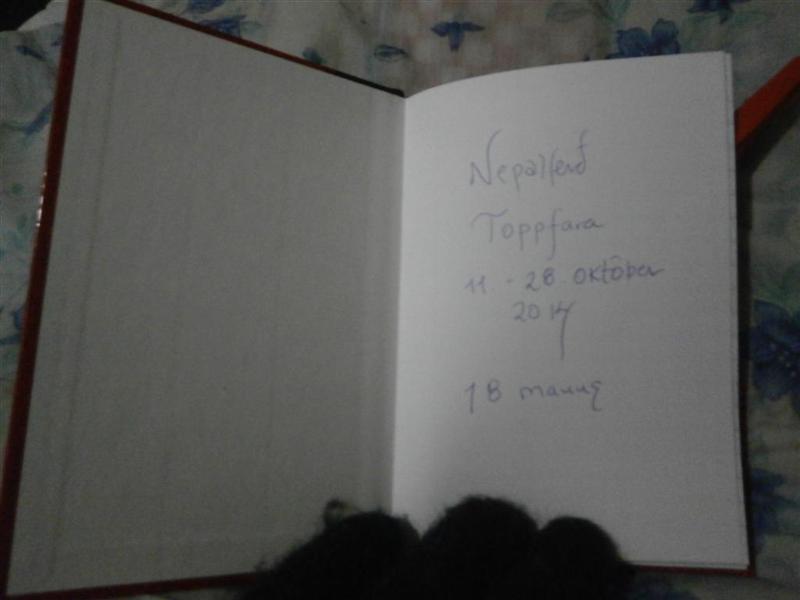 Nepalferð
Toppfara
11. - 28. október
2014
18 manns